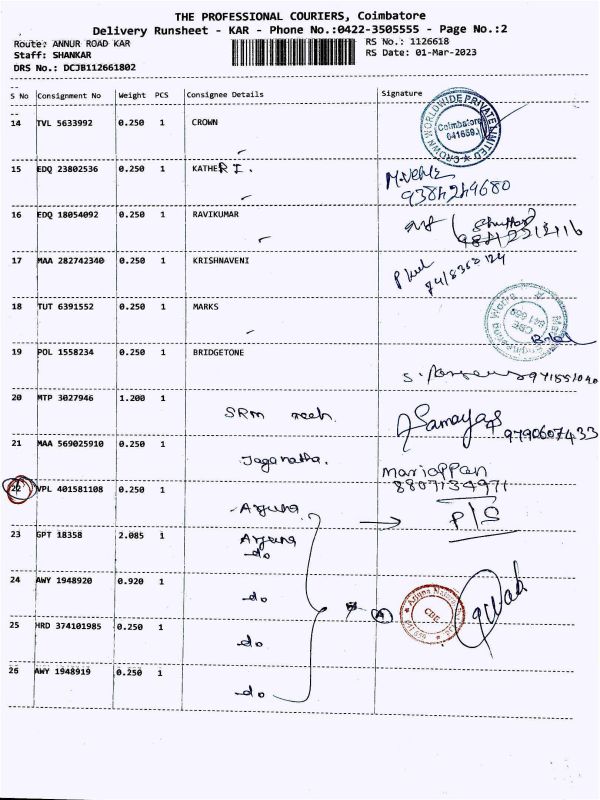 THE PROFESSIONAL COURIERS, Coimbatore
Delivery Runsheet - KAR - Phone No.:0422-3505555 - Page No.:2
Route: ANNUR ROAD KAR RS No.: 1126618
Staff: SHANKAR RS Date: 01-Mar-2023
DRS No.: DCJB112661802
S No Consignment No Weight PCS Consignee Details Signature
14 TVL 5633992 0.250 1 CROWN
CROWN WORLDWIDE PRIVATE LIMITED Coimbatore 641659.
15 EDQ 23802536 0.250 1 KATHERI.
9384249680
16 EDQ 18054092 0.250 1 RAVIKUMAR
17 MAA 282742340 0.250 1 KRISHNAVENI
18 TUT 6391552 0.250 1 MARKS
CBE 641 659
19 POL 1558234 0.250 1 BRIDGETONE
20 MTP 3027946 1.200 1 SRM
Samayas 9790607433
21 MAA 569025910 0.250 1 Jaganatha.
Mariappan
8807134971
22 VPL 401581108 0.250 1 Arjuna P/S
23 GPT 18358 2.085 1 Arjuna
do
24 AWY 1948920 0.920 1 do
4 Arjuna CBE 641 659
25 HRD 374101985 0.250 1 do
26 AWY 1948919 0.250 1 do